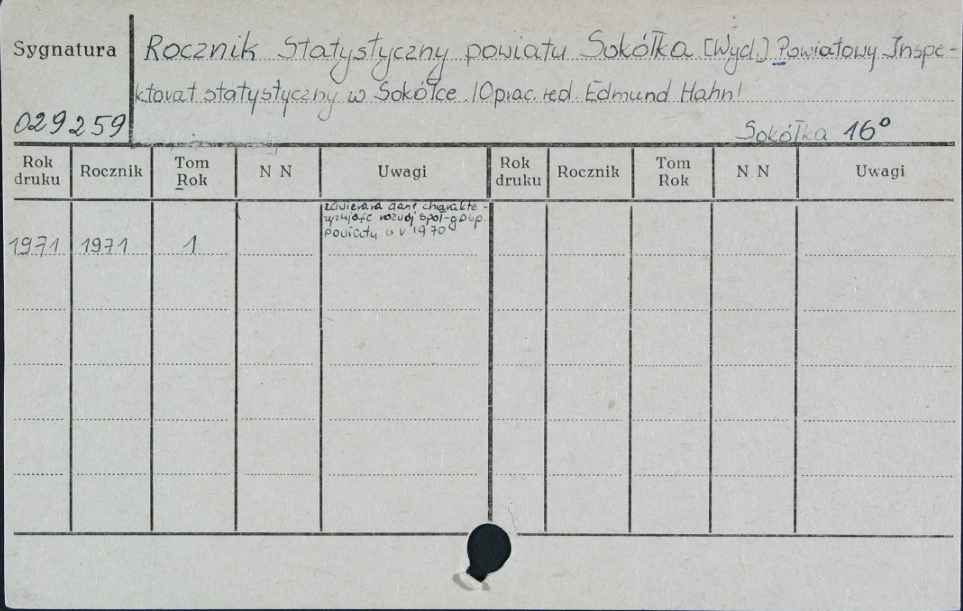 Sygnatura
Rocznik Statystyczny powiatu Sokółka [Wyd.] Powiatowy Inspe-
ktorat statystyczny w Sokółce. /Oprac. red. Edmund Hahn/
029259
Sokółka 16°
Rok druku Rocznik Tom Rok N N Uwagi Rok druku Rocznik Tom Rok N N Uwagi
zawierara dane charakte-
ryzujące rozwój społ-gosp.
powiatu w 1970
1971 1971 1